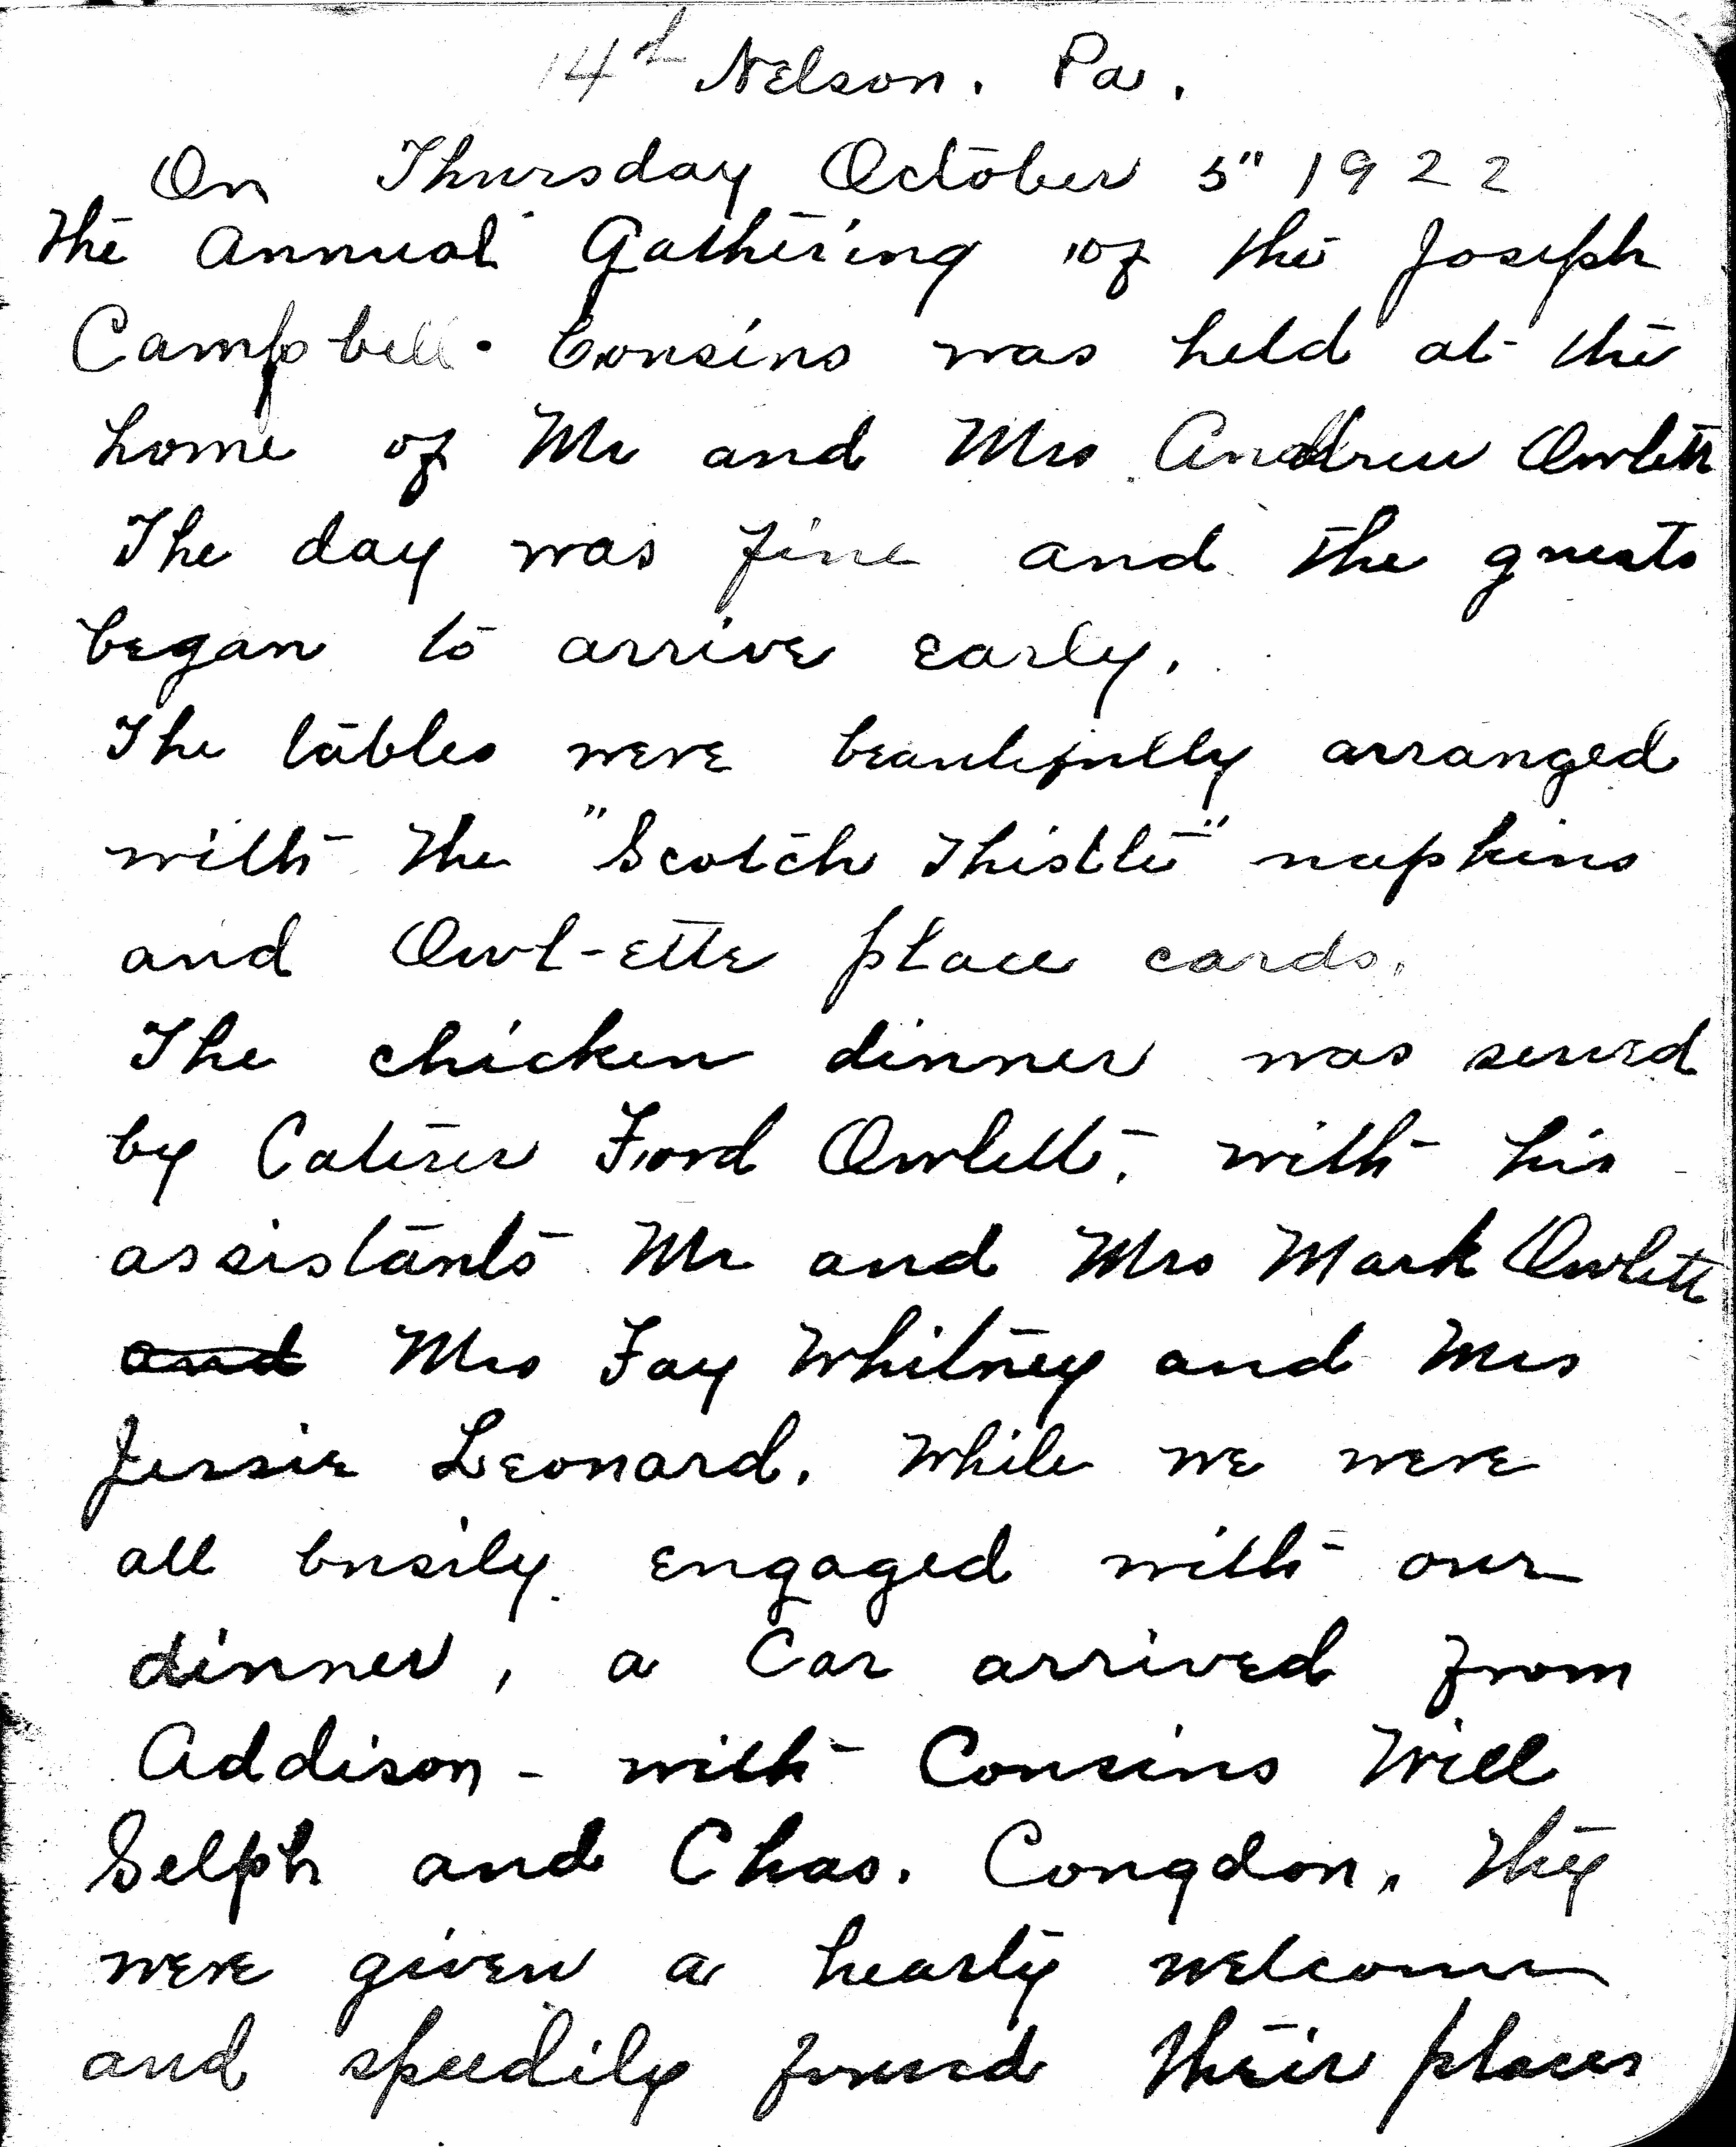 14th Nelson. Pa.
On Thursday October 5" 1922
the Annual Gathering of the Joseph
Campbell Cousins was held at the
home of Mr and Mrs Andrew Owlett
The day was fine and the guests
began to arrive early.
The tables were beautifully arranged
with the "Scotch Thistle" napkins
and Owl-ette place cards.
The chicken dinner was served
by Caterer Ford Owlett, with his
assistants Mr and Mrs Mark Owlett
and Mrs Fay Whitney and Mrs
Jessie Leonard. While we were
all busily engaged with our
dinner, a Car arrived from
Addison - with Cousins Will
Selph and Chas. Congdon. They
were given a hearty welcome
and speedily found their places